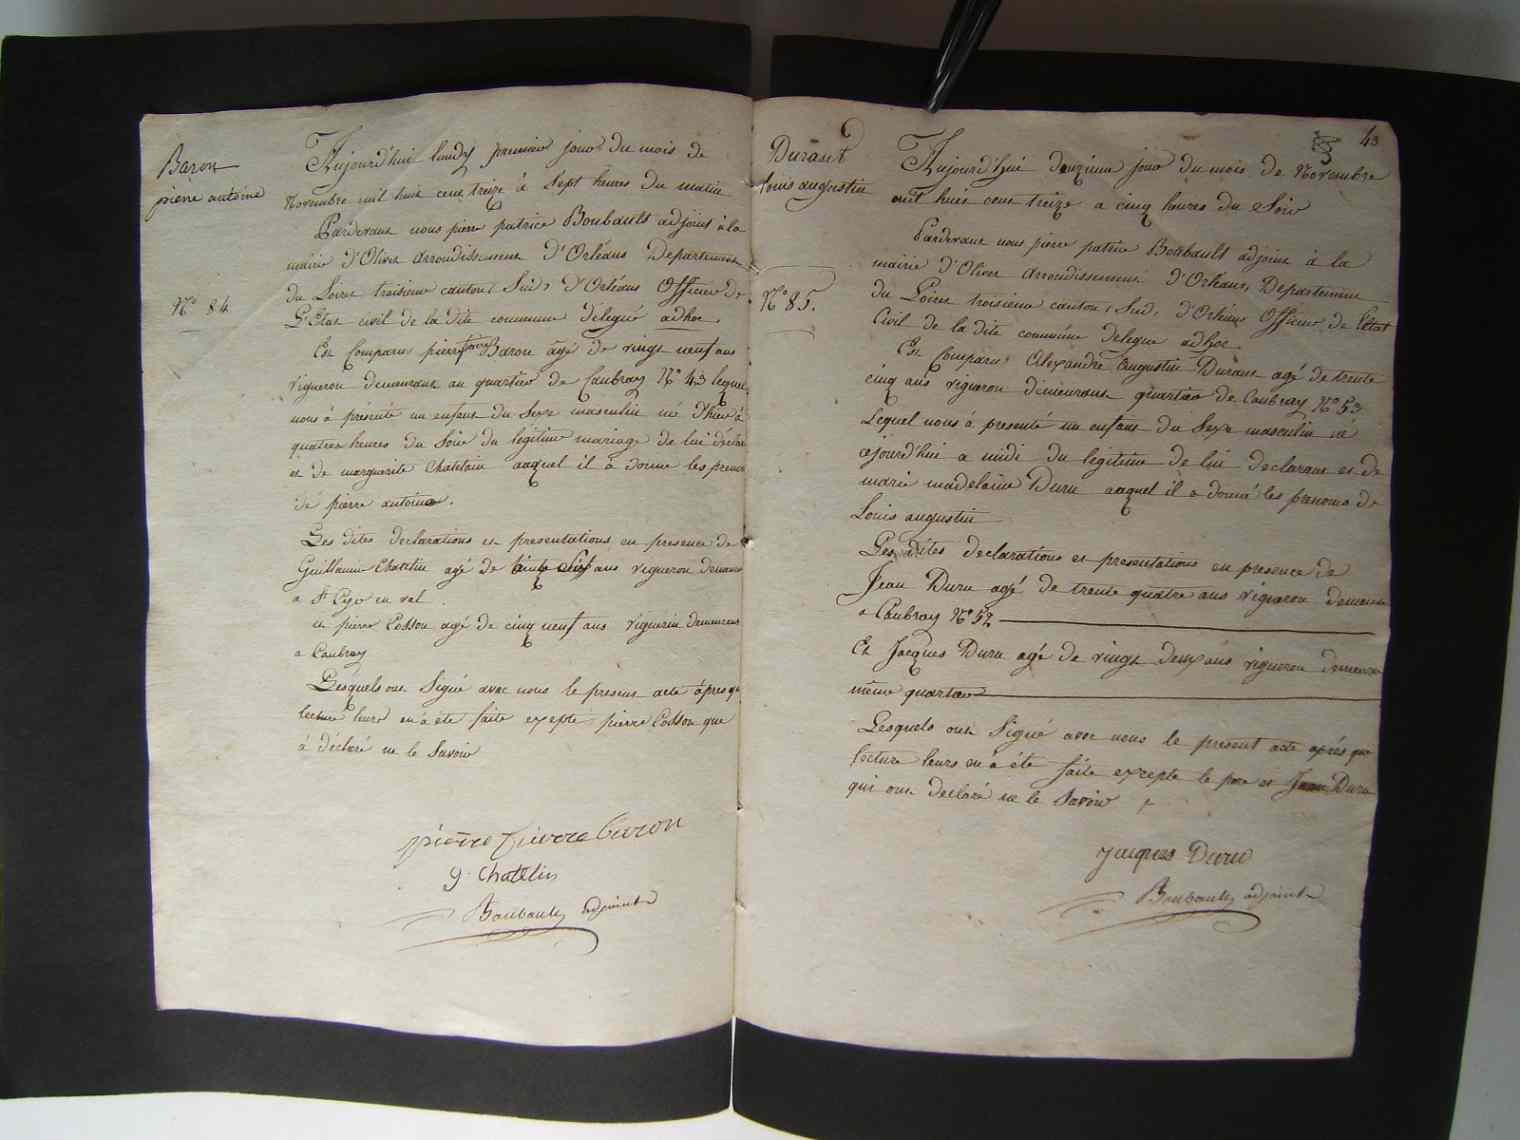 Baron
pierre antoine
N° 84
Aujourd'hui lundy premier jour du mois de
Novembre mil huit cent treize à Sept heures du matin
Pardevant nous pierre patrice Boubault adjoint à la
mairie d'Olivet arrondissement d'Orléans Departement
du Loiret troisieme canton, Sud, d'Orléans Officier de
L'Etat civil de la dite commune délégué adhoc
Est Comparu pierre Baron agé de vingt neuf ans
Vigneron demeurant au quartier de Caubray N° 43 lequel
nous à présenté un enfant du Sexe masculin né d'hier à
quatres heures du Soir du légitime mariage de lui déclar
et de marguerite Chatelain auquel il à donné les prenoms
de pierre antoine.
Les dites declarations et presentations en presence de
Guillaume Chatelin agé de ans vigneron demeurant
a St Cyr en val
et pierre Cosson agé de cinq neuf ans vigneron demeurent
a Caubray
Lesquels ont Signé avec nous le present acte après que
lecture leurs en à été faite excepté pierre Cosson que
à déclaré ne le Savoir
pierre pierre baron
g. Chatelin
Boubault adjoint
43
Durant
louis augustin
N° 85.
Aujourd'hui douzieme jour du mois de Novembre
mil huit cent treize a cinq heures du Soir
Pardevant nous pierre patrice Boubault adjoint à la
mairie d'Olivet arrondissement d'Orléans, Departement
du Loiret troisieme canton, Sud, d'Orléans Officier de l'Etat
Civil de la dite commune delegué adhoc
Est Comparu Alexandre Augustin Durant agé de trente
cinq ans vigneron demeurant quartier de Caubray N° 53
Lequel nous à presenté un enfant du Sexe masculin né
ajourd'hui a midi du legitime de lui declarant et de
marie madelaine Duru auquel il a donné les prenoms de
Louis augustin
Les dites declarations et presentations en presence de
Jean Duru agé de trente quatre ans vigneron demeurant
a Caubray N° 52
Et Jacques Duru agé de vingt deux ans vigneron demeurant
même quartier
Lesquels ont Signé avec nous le present acte après que
lecture leurs en à été faite excepte le pere et Jean Duru
qui ont declaré ne le Savoir
jacques Duru
Boubault adjoint